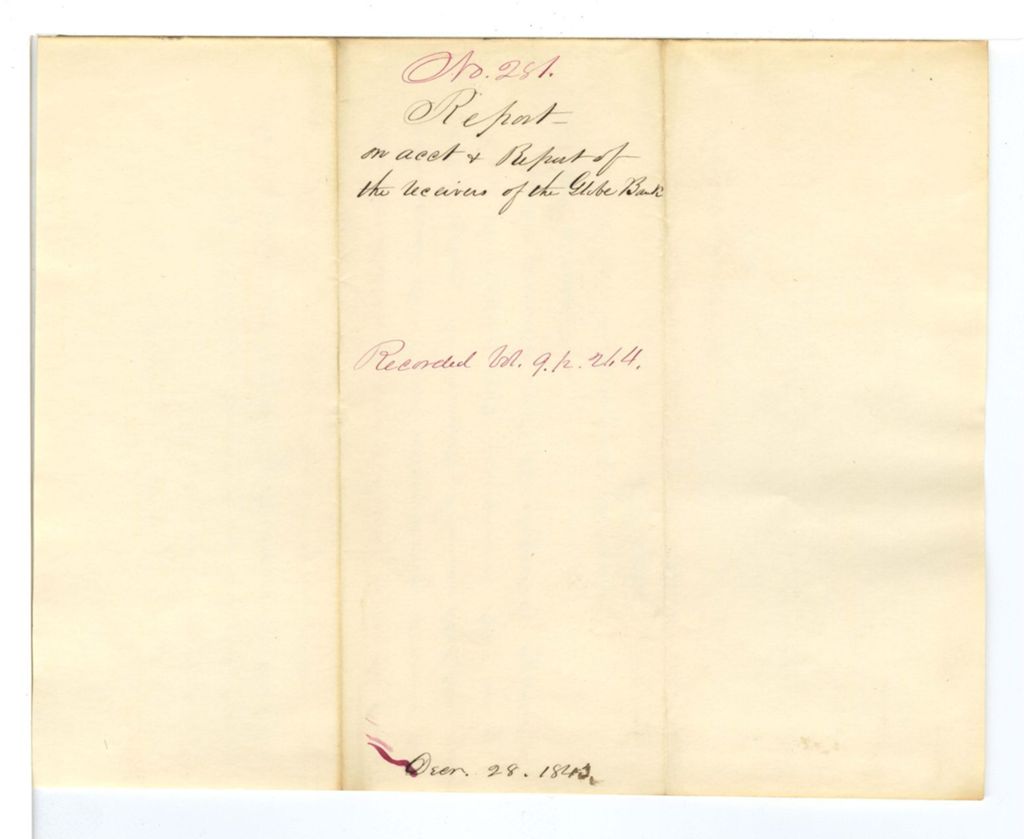 No. 281.
Report =
on acct & Report of
the receivers of the Globe Bank
Recorded Vol. 9. p. 264.
Decr. 28. 1843.